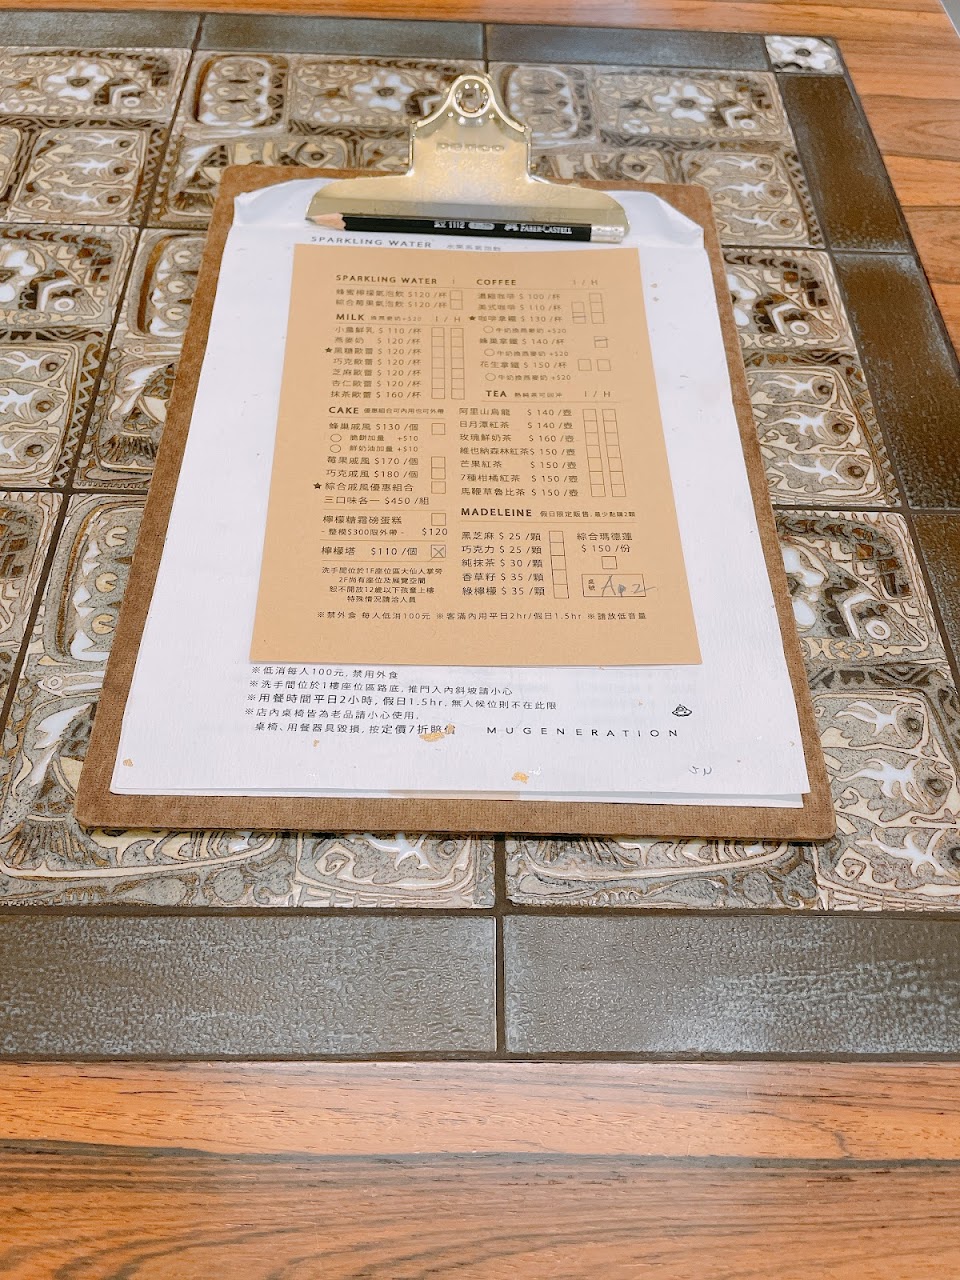 penco
1112
FABER-CASTELL
SPARKLING WATER 水果氣泡飲
SPARKLING WATER I
蜂蜜檸檬氣泡飲 $120 /杯
綜合莓果氣泡飲 $120 /杯
MILK 換燕麥奶+$20 I / H
小農鮮乳 $ 110 /杯
燕麥奶 $ 120 /杯
★黑糖歐蕾 $ 120 /杯
巧克歐蕾 $ 120 /杯
芝麻歐蕾 $ 120 /杯
杏仁歐蕾 $ 120 /杯
抹茶歐蕾 $ 160 /杯
CAKE 優惠組合可內用也可外帶
蜂巢戚風 $130 /個
脆餅加量 +$10
鮮奶油加量 +$10
莓果戚風 $170 /個
巧克戚風 $180 /個
★綜合戚風優惠組合
三口味各一 $450 /組
檸檬糖霜磅蛋糕
- 整模$300限外帶 - $120
檸檬塔 $110 /個
洗手間位於1F座位區大仙人掌旁
2F尚有座位及展覽空間
恕不開放12歲以下孩童上樓
特殊情況請洽人員
COFFEE I / H
濃縮咖啡 $ 100 /杯
美式咖啡 $ 110 /杯
★咖啡拿鐵 $ 130 /杯
牛奶換燕麥奶 +$20
蜂巢拿鐵 $ 140 /杯
牛奶換燕麥奶 +$20
花生拿鐵 $ 150 /杯
牛奶換燕麥奶 +$20
TEA 熱純茶可回沖 I / H
阿里山烏龍 $ 140 /壺
日月潭紅茶 $ 140 /壺
玫瑰鮮奶茶 $ 160 /壺
維也納森林紅茶$ 150 /壺
芒果紅茶 $ 150 /壺
7種柑橘紅茶 $ 150 /壺
馬鞭草魯比茶 $ 150 /壺
MADELEINE 假日限定販售,最少點購2顆
黑芝麻 $ 25 /顆
巧克力 $ 25 /顆
純抹茶 $ 30 /顆
香草籽 $ 35 /顆
綠檸檬 $ 35 /顆
綜合瑪德蓮
$ 150 /份
桌號
※禁外食 每人低消100元 ※客滿內用平日2hr/假日1.5hr ※請放低音量
※低消每人100元, 禁用外食
※洗手間位於1樓座位區路底, 推門入內斜坡請小心
※用餐時間平日2小時, 假日1.5hr. 無人候位則不在此限
※店內桌椅皆為老品請小心使用,
桌椅、用餐器具毀損, 按定價7折賠償
MUGENERATION